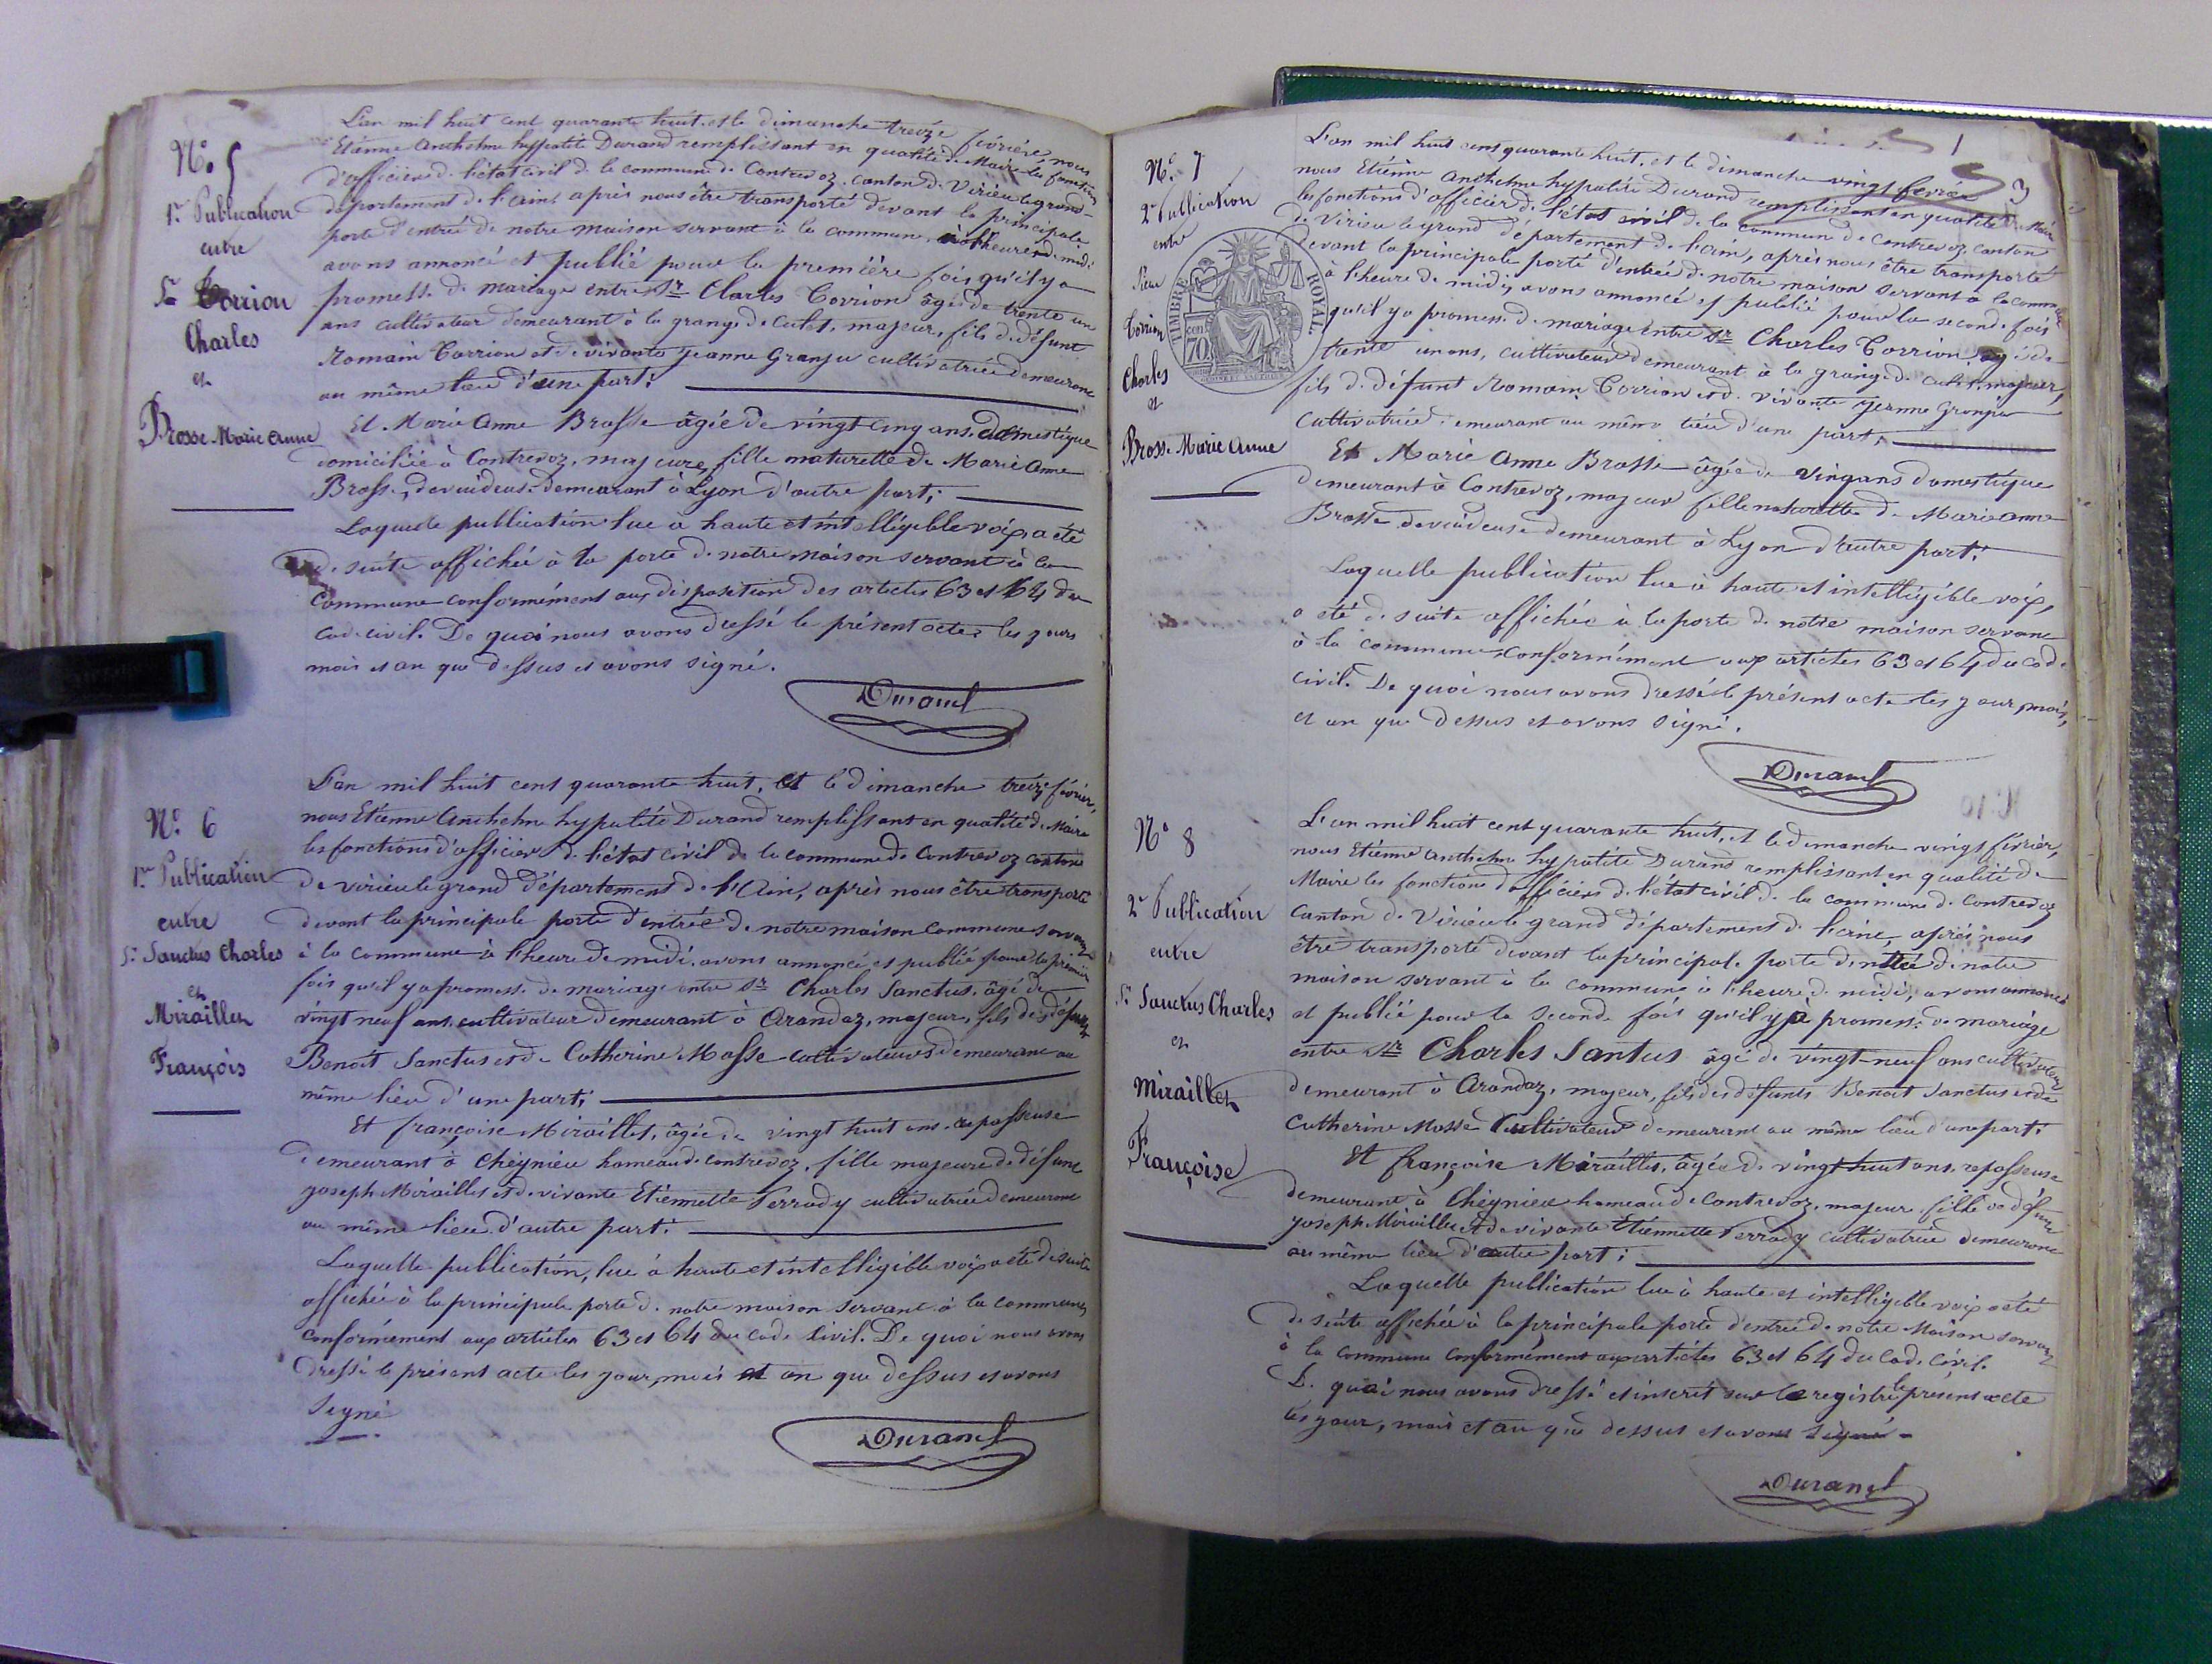 N.o 5
1.re Publication
entre
Sr Corrion
Charles
et
Brosse Marie Anne
L'an mil huit cent quarante huit, et le dimanche treize février, nous
Etienne Anthelme hyppolite Durand remplissant en qualité de Maire les fonctions
d'officier de l'état civil de la commune de Contrevoz, canton de Virieu le grand
département de l'ain, après nous être transporté devant la principale
porte d'entrée de notre maison servant à la commune, à l'heure de midi
avons annoncé et publié pour la première fois qu'il y a
promesse de mariage entre Sr Charles Corrion âgé de trente un
ans cultivateur demeurant à la grange de culet, majeur, fils de défunt
Romain Corrion et de vivante jeanne Granju cultivatrice demeurant
au même lieu d'une part;
Et Marie Anne Brosse âgée de vingt cinq ans domestique
domiciliée à Contrevoz, majeure, fille naturelle de Marie Anne
Brosse, devideuse demeurant à Lyon d'autre part;
Laquelle publication lue a haute et intelligible voix, a été
de suite affichée à la porte de notre maison servant à la
commune conformément aux disposition des articles 63 et 64 du
code civil. De quoi nous avons dressé le présent acte les jours
mois et an que dessus et avons signé.
Durand
N.o 6
1.re Publication
entre
Sr Sanctus Charles
et
Miraillet
François
L'an mil huit cent quarante huit, et le dimanche treize février,
nous Etienne Anthelme hypolite Durand remplissant en qualité de Maire
les fonctions d'officier de l'état civil de la commune de Contrevoz canton
de virieu le grand département de l'Ain, après nous être transporté
devant la principale porte d'entrée de notre maison commune servant
à la commune à l'heure de midi, avons annoncé et publié pour la première
fois qu'il y a promesse de mariage entre Sr Charles Sanctus, âgé de
vingt neuf ans, cultivateur demeurant à Arandaz, majeur, fils des défunts
Benoit Sanctus et de Catherine Masse cultivateurs demeurant au
même lieu d'une part;
Et françoise Miraillet, âgée de vingt huit ans, repasseuse
demeurant à Cheignieu hameau de contrevoz, fille majeure de défunt
joseph Miraillet et de vivante Etiennette Perrody cultivatrice demeurant
au même lieu d'autre part;
Laquelle publication, lue à haute et intelligible voix a été de suite
affichée à la principale porte de notre maison servant à la commune,
conformément aux articles 63 et 64 du code Civil. De quoi nous avons
dressé le présent acte les jour, mois et an que dessus et avons
signé
Durand
1
3
N.o 7
2e Publication
entre
Sieur
Corrion
Charles
et
Brosse Marie Anne
TIMBRE ROYAL
cen
70
L'an mil huit cent quarante huit, et le dimanche vingt février
nous Etienne Anthelme hyppolite Durand remplissant en qualité de Maire
les fonctions d'officier de l'état civil de la commune de Contrevoz canton
de Virieu le grand département de l'ain, après nous être transporté
devant la principale porte d'entrée de notre maison servant à la commune
à l'heure de midi, avons annoncé et publié pour la seconde fois
qu'il y a promesse de mariage entre Sr Charles Corrion âgé de
trente un ans, cultivateur demeurant à la grange de culet majeur,
fils de défunt Romain Corrion et de vivante jeanne Granju
cultivatrice demeurant au même lieu d'une part;
Et Marie Anne Brosse âgée de vingans domestique
demeurant à Contrevoz, majeur fille naturelle de Marie anne
Brosse devideuse demeurant à Lyon d'autre part;
Laquelle publication lue à haute et intelligible voix,
a été de suite affichée à la porte de notre maison servant
à la commune, conformément aux articles 63 et 64 du code
civil. De quoi nous avons dressé le présent acte les jour, mois,
et an que dessus et avons signé.
Durand
N.o 8
2e Publication
entre
Sr Sanctus Charles
et
Miraillet
Françoise
L'an mil huit cent quarante huit, et le dimanche vingt février,
nous Etienne anthelme hypolite Durand remplissant en qualité de
Maire les fonctions d'officier de l'état civil de la commune de Contrevoz
canton de Virieu le grand département de l'aine, après nous
être transporté devant la principale porte d'entrée de notre
maison servant à la commune à l'heure de midi, avons annoncé
et publié pour la seconde fois qu'il y a promesse de mariage
entre Sr Charles Santus âgé de vingt-neuf ans cultivateur
demeurant à Arandaz, majeur, fils des défunts Benoit Sanctus et de
Catherine Masse Cultivateurs demeurant au même lieu d'une part;
Et françoise Miraillet, âgée de vingt huit ans, repasseuse
demeurant à Cheignieu hameau de Contrevoz, majeur fille de défunt
joseph Miraillet et de vivante Etiennette Perrody cultivatrice demeurant
au même lieu d'autre part;
Laquelle publication lue à haute et intelligible voix a été
de suite affichée à la principale porte d'entrée de notre Maison servant
à la commune conformément aux articles 63 et 64 du Code Civil.
De quoi nous avons dressé et inscrit sur le registre le présent acte
les jour, mois et an que dessus et avons signé.
Durand